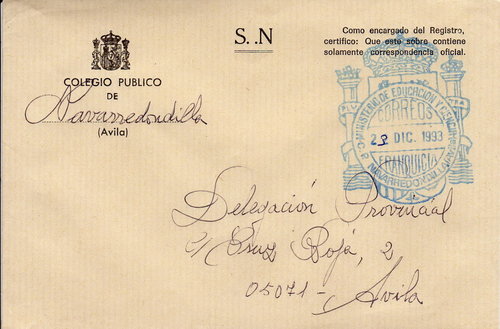 S. N
Como encargado del Registro,
certifico: Que este sobre contiene
solamente correspondencia oficial.
COLEGIO PUBLICO
DE
Navarredondilla
(Avila)
MINISTERIO DE EDUCACION Y CIENCIA
CORREOS
23 DIC. 1993
FRANQUICIA
C.P. NAVARREDONDILLA
Delegación Provincial
C/ Cruz Roja, 2
05071 - Avila